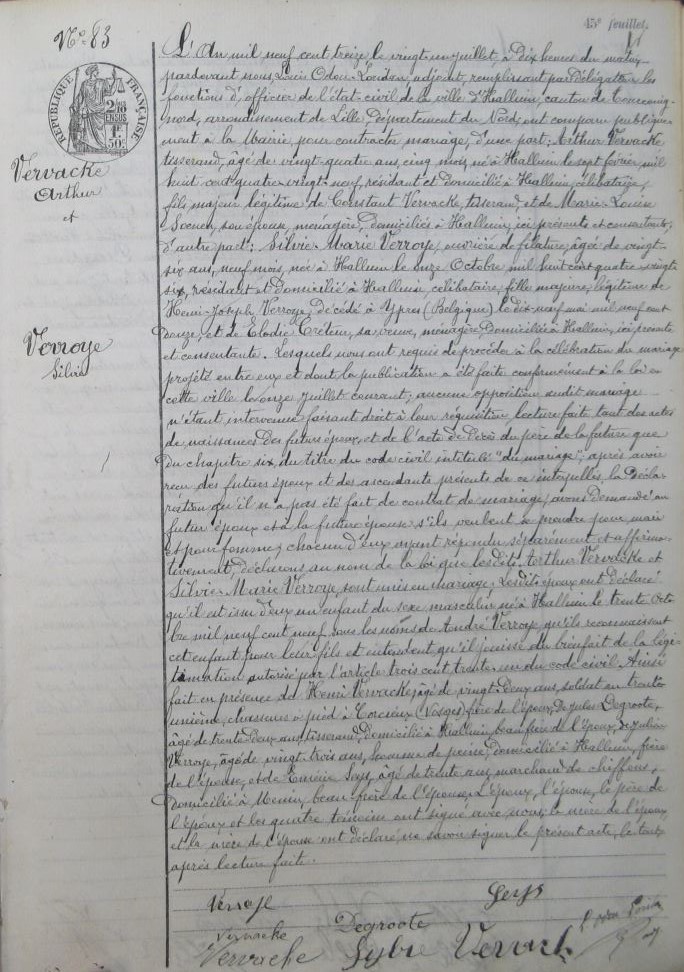 45e feuillet.
N° 83
RÉPUBLIQUE FRANÇAISE
Vervacke
Arthur
et
Verroye
Silvie
L'An mil neuf cent treize le vingt un juillet, à dix heures du matin
pardevant nous, Louis Odou, adjoint, remplissant par délégation les
fonctions d'officier de l'état-civil de la ville d'Halluin, canton de Tourcoing-
nord, arrondissement de Lille, Département du Nord, ont comparu publique-
ment à la Mairie, pour contracter mariage, d'une part: Arthur Vervacke
tisserand, âgé de vingt-quatre ans, cinq mois, né à Halluin le sept février mil
huit cent quatre vingt-neuf, résidant et domicilié à Halluin, célibataire,
fils majeur légitime de Constant Vervacke, tisserand, et de Marie-Louise
son épouse, ménagère, domiciliés à Halluin, ici présents et consentants;
d'autre part: Silvie-Marie Verroye, ouvrière de filature, âgée de vingt-
six ans, neuf mois, née à Halluin le onze Octobre mil huit cent quatre vingt-
six, résidant et domiciliée à Halluin, célibataire, fille majeure, légitime de
Henri-Joseph Verroye, décédé à Ypres (Belgique) le dix neuf mai mil neuf cent
douze, et de Elodie Créteur, sa veuve, ménagère, domiciliée à Halluin, ici présente
et consentante. Lesquels nous ont requis de procéder à la célébration du mariage
projeté entre eux et dont la publication a été faite conformément à la loi en
cette ville le onze juillet courant; aucune opposition audit mariage
n'étant intervenue, faisant droit à leur réquisition, lecture fait tant des actes
de naissance des futurs époux, et de l'acte de décès du père de la future que
du chapitre six, du titre du code civil intitulé "du mariage"; après avoir
reçu des futurs époux et des ascendants présents de ce interpellés, la décla-
ration qu'il n'a pas été fait de contrat de mariage, avons demandé au
futur époux et à la future épouse s'ils veulent se prendre pour mari
et pour femme; chacun d'eux ayant répondu séparément et affirma-
tivement, déclarons au nom de la loi que les dits, Arthur Vervacke et
Silvie-Marie Verroye, sont unis en mariage. Lesdits époux ont déclaré
qu'il est issu d'eux un enfant du sexe masculin né à Halluin le trente Octo-
bre mil neuf cent neuf sous les noms de André Verroye qu'ils reconnaissent
cet enfant pour leur fils et entendent qu'il jouisse du bienfait de la légi-
timation autorisée par l'article trois cent trente un du code civil. Ainsi
fait en présence de Henri Vervacke, âgé de vingt-deux ans, soldat au trente
unième, chasseurs à pied à Corcieux (Vosges) frère de l'époux, de Jules Degroote,
âgé de trente deux ans, tisserand, domicilié à Halluin, beau frère de l'époux, de Julien
Verroye, âgé de vingt-trois ans, homme de peine, domicilié à Halluin, frère
de l'épouse, et de Seys, âgé de trente ans, marchand de chiffons,
domicilié à Menin, beau-frère de l'épouse. L'époux, l'épouse, le père de
l'époux et les quatre témoins ont signé avec nous; la mère de l'époux
et la mère de l'épouse ont déclaré ne savoir signer le présent acte, le tout
après lecture faite.
Verroye
Seys
Vervacke
Degroote
Vervacke
Vervack